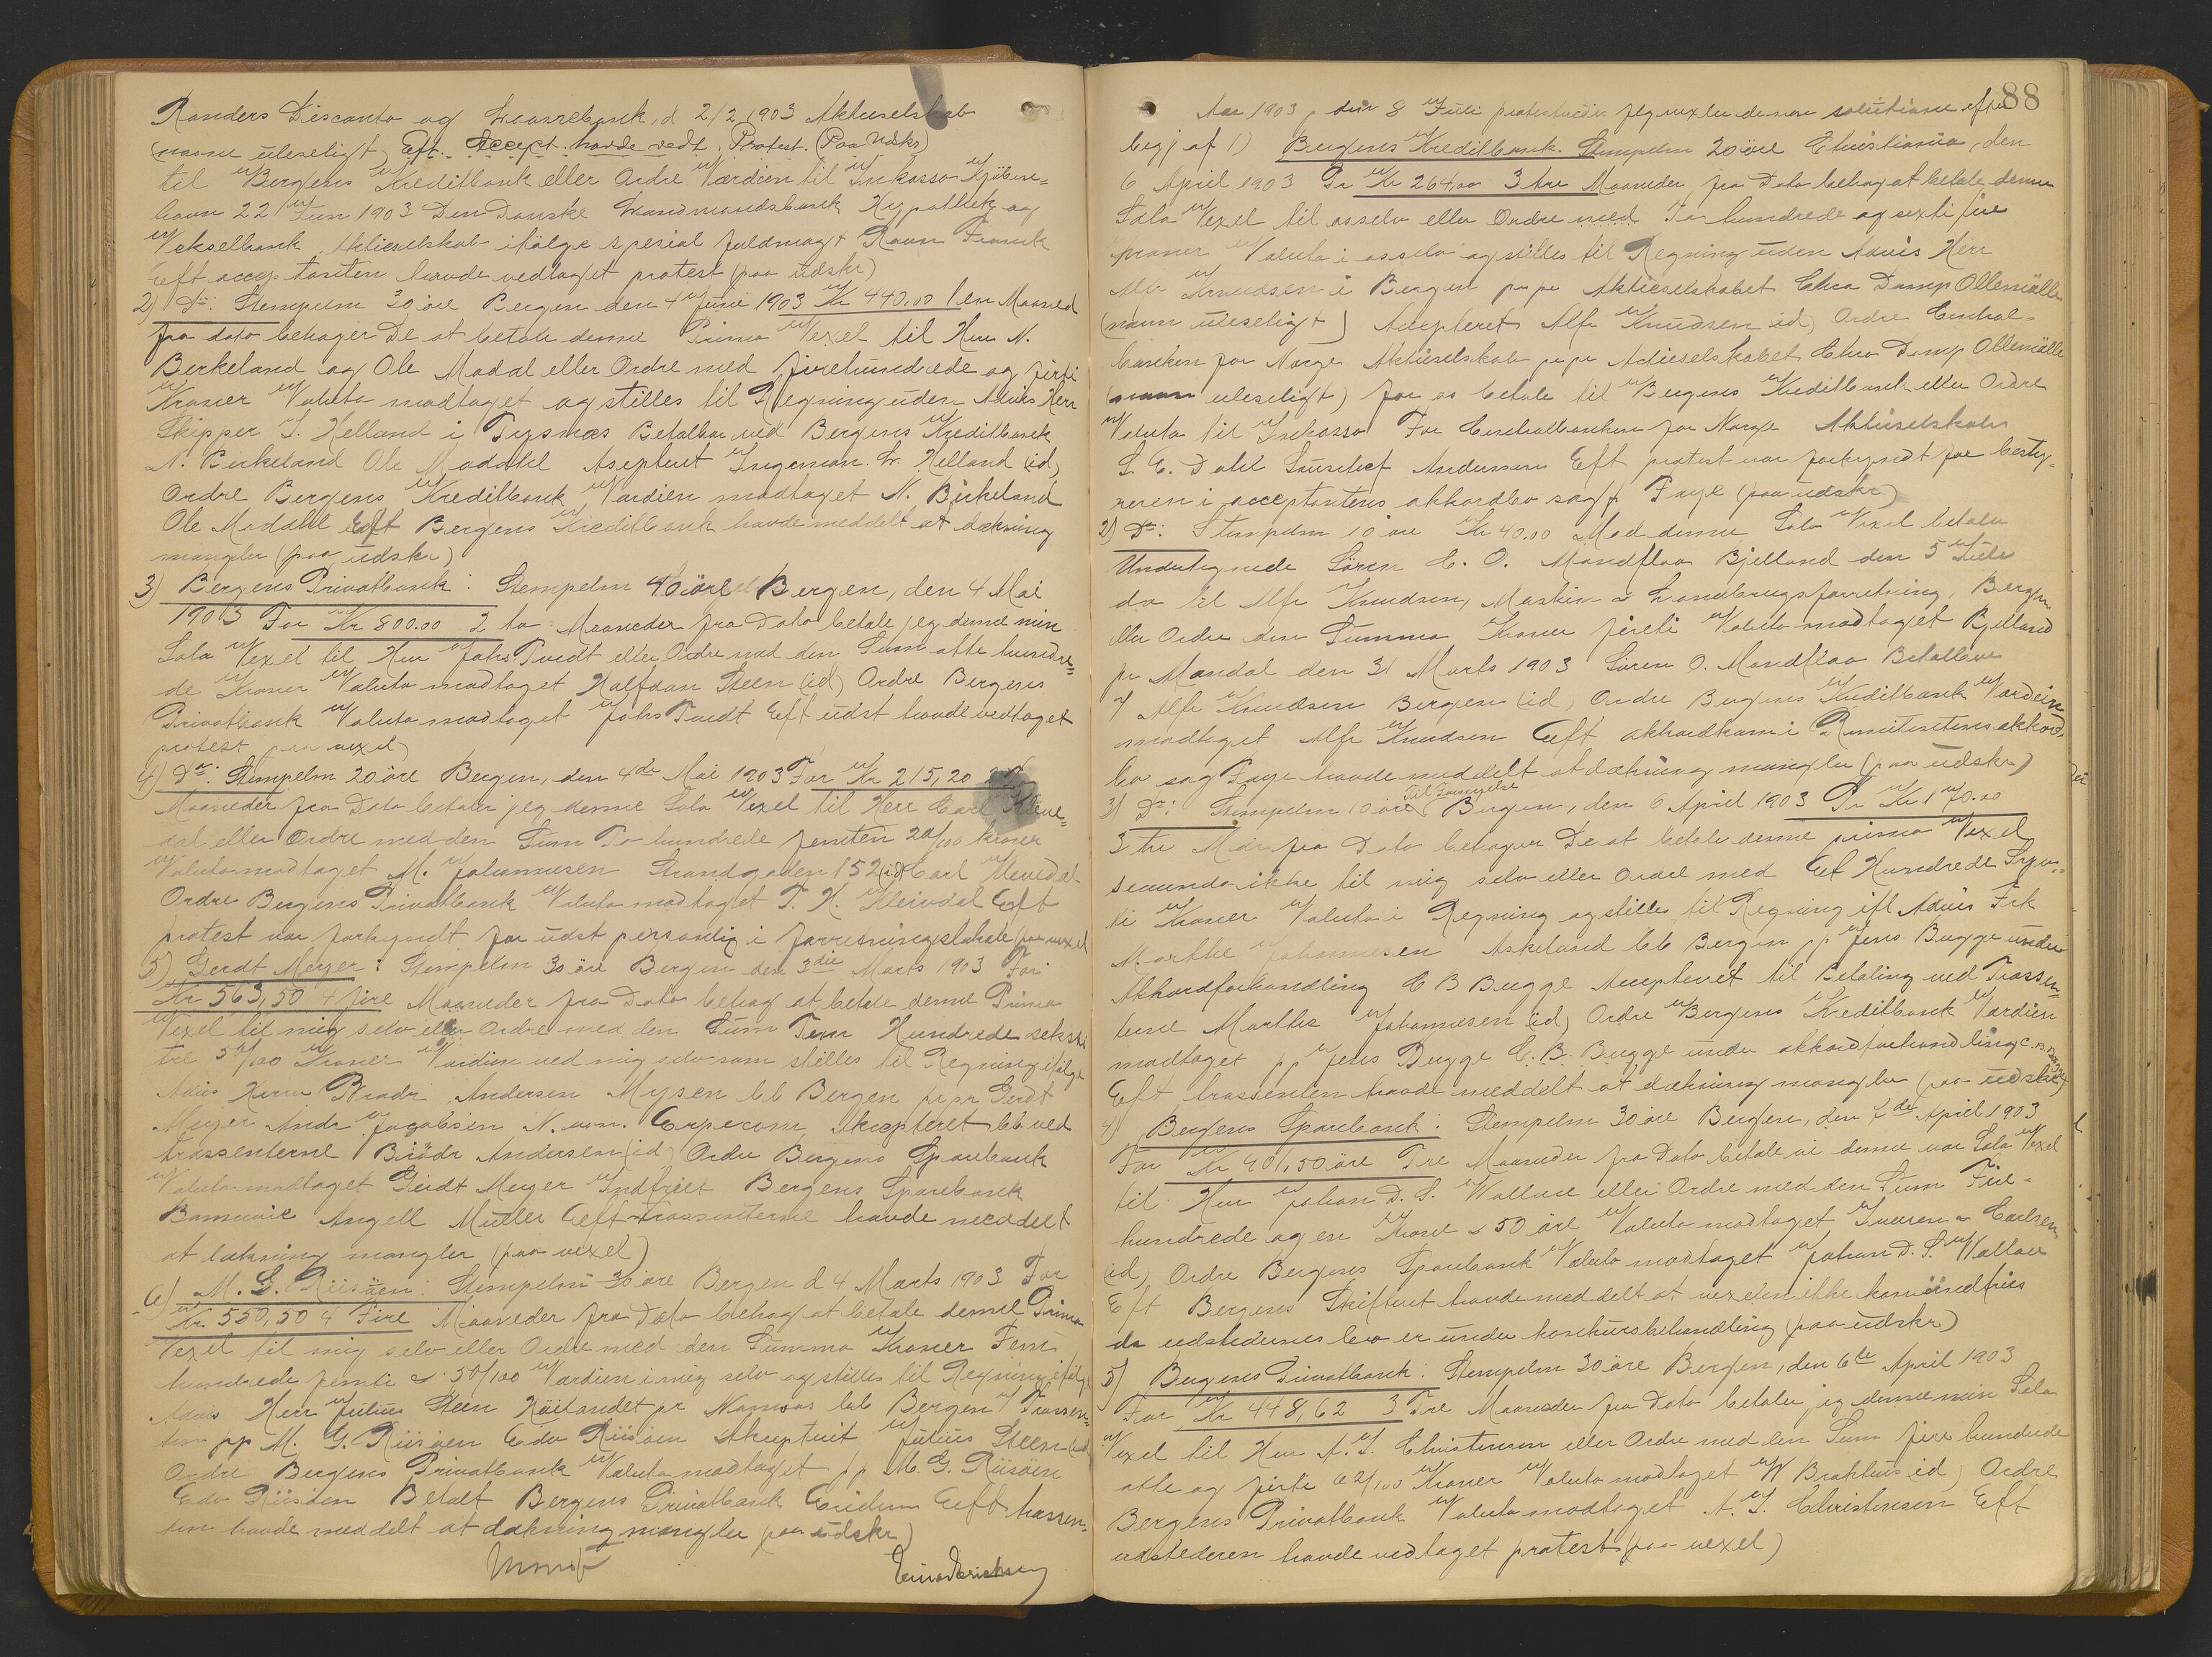 Randers Disconto og Laanebank, d 2/2 1903 Aktieselskab
(navne uleseligt) Eft. Accept. havde vedt. Protest. (Paa Veks)
til Bergens Kreditbank eller Ordre Værdien til Inkasso Kjöben=
havn 22 Jun 1903 Den Danske Landmandsbank Hypothek og
Vekselbank Aktieselskab ifölge spesial fuldmagt Ravn Franck
Eft accep tanten havde vedtaget protest (paa udskr)
2) Do: Stempelm 30 öre Bergen den 4 Juni 1903 Kr 440.00 1 en Maaned
fra dato behager De at betale denne Prima Vexel til Herr N.
Berkeland og Ole Madal eller Ordre med firehundrede og firti
Kroner Valuta modtaget og stilles til Regning uden Advis Herr
Skipper I. Helland i Tysnæs Betalbar ved Bergens Kreditbank
N. Birkeland Ole Maddahl Asepteret Ingeman. L. Helland (id)
Ordre Bergens Kreditbank Værdien modtaget N. Birkeland
Ole Maddahl Eft Bergens Kreditbank havde meddelt at dækning
mangler (paa udskr)
3) Bergens Privatbank: Stempelm 40 öre Bergen, den 4 Mai
1903 For Kr 800.00 2 to Maaneder fra Dato betale jeg denne min
Sola Vexel til Herr Johs Tvedt eller Ordre med den Sum otte hundre=
de Kroner Valuta modtaget Halfdan Steen (id) Ordre Bergens
Privatbank Valuta modtaget Johs Tvedt Eft udst havde vedtaget
protest paa vexel)
4) Do: Stempelm 20 öre Bergen, den 4de Mai 1903 For Kr 215,20 2 to
Maaneder fra Dato betaler jeg denne Sola Vexel til Herr Carl Kleve=
dal eller Ordre med den Sum To hundrede femten 20/100 kroner
Valuta modtaget M. Johannesen Strandgaden 152 (id) Carl Klevdal
Ordre Bergens Privatbank Valuta modtaget T. H. Kleivdal Eft
protest var forkyndt for udst personlig i forretningslokale (paa vexel
5) Gerdt Meyer: Stempelm 30 öre Bergen den 3die Marts 1903 For
Kr 563,50 4 fire Maaneder fra Dato behag at betale denne Prima
Vexel til mig selv eller Ordre med den Sum Fem Hundrede seksti
tre 50/100 Kroner Værdien ved mig selv som stilles til Regning ifölge
Advis Herrer Brödr. Andersen Mysen bb Bergen pr pr Gerdt
Meyer Andr Jacobsen N. von. Erpecom Akcepteret bb ved
trassenterne Brödr Andersen (id) Ordre Bergens Sparebank
Valuta modtaget Gerdt Meyer Indfriet Bergens Sparebank
Angell Müller Eeft trassenterne havde meddelt
at dækning mangler (paa vexel)
6) M. G. Riisöen: Stempelm 30 öre Bergen d 4 Marts 1903 For
Kr. 550,50 4 Fire Maaneder fra Dato behag at betale denne Prima
Vexel til mig selv eller Ordre med den Summa Kroner Fem
hundrede femti & 50/100 Værdien i mig selv og stilles til Regning ifölge
Advis Herr Julius Steen Höilandet pr Namsos bb Bergen Trassen=
ten pp M. G. Riisöen Edv Riisöen Akcepteret Julius Steen (id)
Ordre Bergens Privatbank Valuta modtaget pp M. G. Riisöen
Edv Riisöen Betalt Bergens Privatbank Eeft trassen=
ten havde meddelt at dækning mangler (paa udskr)
88
Aar 1903 den 8 Juli protesteredes jeg vexler denne solutione efter
begj af 1) Bergens Kreditbank. Stempelm 20 öre Christiania, den
6 April 1903 Pr Kr 264,00 3 tre Maaneder fra Dato behag at betale denne
Sola Vexel til osselv eller Ordre med To hundrede og sexti fire
kroner Valuta i osselv og stilles til Regning uden Advis Herr
Alfr Knudsen i Bergen pr pr Aktieselskabet Chra Damp Oliemölle
(navn uleseligt) Accepteret Alfr Knudsen id) Ordre Central=
banken for Norge Aktieselskab pr pr Actieselskabet Chra Damp Oliemölle
(navn uleseligt) for os betale til Bergens Kreditbank eller Ordre
Valuta til Inkasso For Centralbanken for Norge Aktieselskab
S. E. Dahl Andersen Eft protest var forkyndt for besty=
reren i acceptantens akkordbo sagf Faye (paa udskr)
2) Do: Stempelm 10 öre Kr 40.00 Mod denne Sola Vexel betaler
Undertegnede Sören C. O. Mandflaa Bjelland den 5 Juli
da til Alfr Knudsen, Maskin & Landbrugsforretning, Bergen
eller Ordre den Summa Kroner firti Valuta modtaget Bjelland
pr Mandal den 31 Marts 1903 Sören O. Mandflaa Betalbar
Alfr Knudsen Bergen (id) Ordre Bergens Kreditbank Værdien
modtaget Alfr Knudsen Eeft i Remittentens akkord
bo sag Faye havde meddelt at dækning mangler (paa udskr)
3) Do: Stempelm 10 öre Til Bergen, den 6 April 1903 Pr Kr 170.00
3 tre Mdr fra Dato behager De at betale denne prima Vexel
secunda ikke til mig selv eller Ordre med Et Hundrede Sytt=
ti Kroner Valuta i Regning og stilles til Regning ifl Advis Frk
Marthe Johannesen Askeland bb Bergen pp Jens Bugge under
Akkordforhandling C B Bugge Accepteret til Betaling ved Trassen=
tene Marthe Johannesen (id) Ordre Bergens Kreditbank Værdien
modtaget pp Jens Bugge C. B. Bugge under akkordforhandling C. B. Bugge
Eft trassenten havde meddelt at dækning mangler (paa udskr)
4) Bergens Sparebank: Stempelm 30 öre Bergen, den 7de April 1903
For Kr 401,50 öre Tre Maaneder fra Dato betale vi denne vor Sola Vexel
til Herr Johan D. S. Wallace eller Ordre med den Sum Fire=
hundrede og en Krone & 50 öre Valuta modtaget Iversen & Carlsen
(id) Ordre Bergens Sparebank Valuta modtaget Johan D. S. Wallace
Eft Bergens Skifteret havde meddelt at vexelen ikke kan indfries
da udstedernes bo er under konkursbehandling (paa udskr)
5) Bergens Privatbank: Stempelm 30 öre Bergen, den 6te April 1903
For Kr 448,62 3 Tre Maaneder fra Dato betaler jeg denne min Sola
Vexel til Herr A. I. Christensen eller Ordre med den Sum fire hundrede
otte og firti 62/100 Kroner Valuta modtaget W Brakhus id) Ordre
Bergens Privatbank Valuta modtaget A. I. Christensen Eft
udstederen havde vedtaget protest (paa vexel)